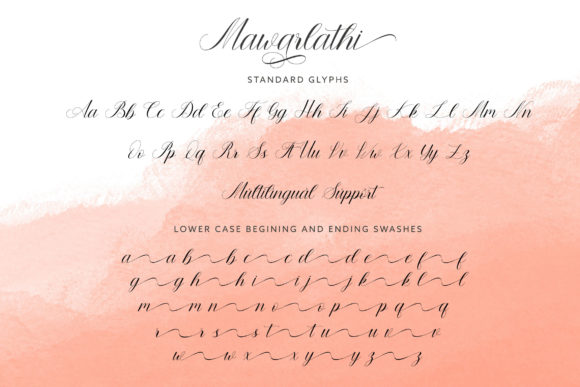 Mawarlathi
STANDARD GLYPHS
Aa Bb Cc Dd Ee Ff Gg Hh Ii Jj Kk Ll Mm Nn
Oo Pp Qq Rr Ss Tt Uu Vv Ww Xx Yy Zz
Multilingual Support
LOWER CASE BEGINING AND ENDING SWASHES
a a b b c c d d e e f f
g g h h i i j j k k l l
m m n n o o p p q q
r r s s t t u u v v
w w x x y y z z